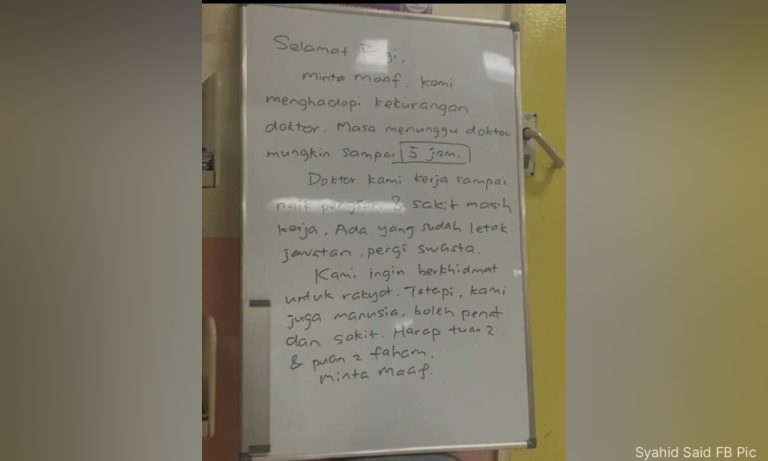 Selamat Pagi,
minta maaf. Kami
menghadapi kekurangan
doktor. Masa menunggu doktor
mungkin sampai 5 jam.
Doktor kami kerja sampai
naik pengsan & sakit masih
kerja. Ada yang sudah letak
jawatan, pergi swasta.
Kami ingin berkhidmat
untuk rakyat. Tetapi, kami
juga manusia, boleh penat
dan sakit. Harap tuan2
& puan2 faham.
minta maaf.
Syahid Said FB Pic